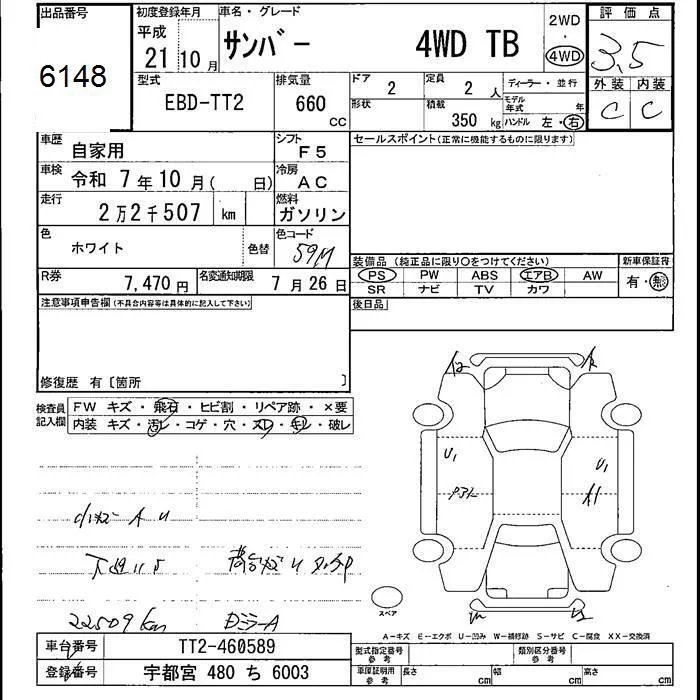 出品番号
6148
初度登録年月
平成
21 10 月
車名・グレード
サンバー 4WD TB
2WD
・
4WD
評価点
3.5
外装 内装
C C
型式
EBD-TT2
排気量
660
CC
ドア
2
定員
2 人
ディーラー・並行
形状
積載
350 kg
モデル年式
年
ハンドル 左・右
車歴
自家用
シフト
F5
セールスポイント(正常に機能するものに限ります)
車検
令和 7 年 10 月 ( 日)
冷房
AC
走行
2 万 2 千 507 km
燃料
ガソリン
色
ホワイト
色替
色コード
59M
装備品 (純正品に限り○をつけてください)
新車保証書
PS PW ABS エアB AW
SR ナビ TV カワ
有・無
R券
7,470 円
名変通知期限
7 月 26 日
後日品
注意事項申告欄 (不具合内容等は具体的に記入して下さい)
修復歴 有〔箇所 〕
検査員
記入欄
FW キズ・飛石・ヒビ割・リペア跡・×要
内装 キズ・汚レ・コゲ・穴・スレ・キレ・破レ
A U
22509 km
U1
U1
A1
スペア
A-キズ E-エクボ U-凹み W-補修跡 S-サビ C-腐食 XX-交換済
車台番号
TT2-460589
登録番号
宇都宮 480 ち 6003
型式指定番号
参考
類別区分番号
参考
車庫証明用
参考
長さ cm
幅 cm
高さ cm